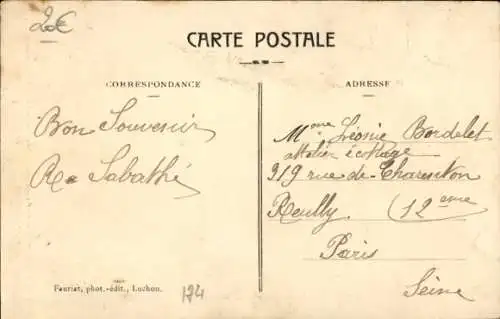 2€
CARTE POSTALE
CORRESPONDANCE
Bon Souvenir
Sabathé
174
Fauriat, phot.-édit., Luchon.
ADRESSE
Mme Léonie Bordelet
attelier
319 rue de Charenton
Reuilly. (12eme
Paris
Seine